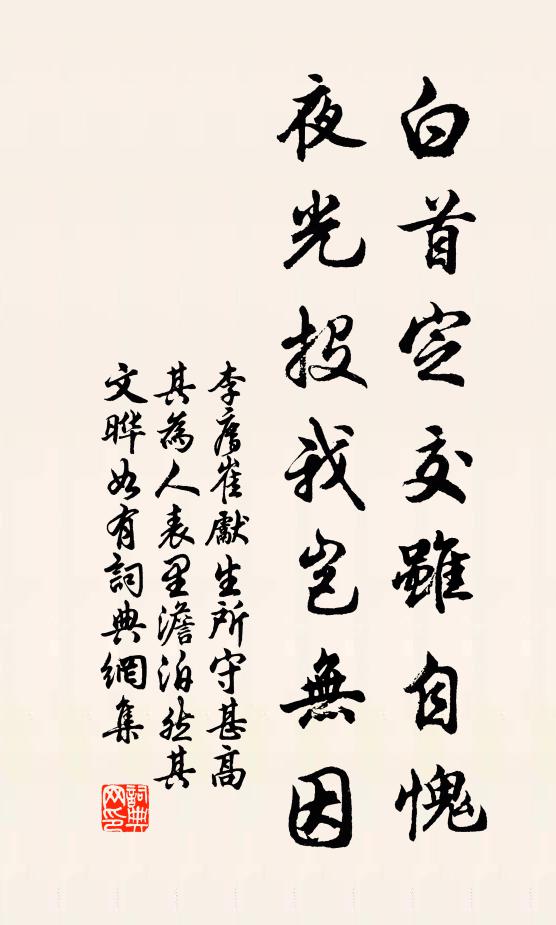 白首定交雖自愧
夜光投我豈無因
李廌崔獻生所守甚高
其為人表里澹泊然其
文曄如有詞典網集
詞典
网印